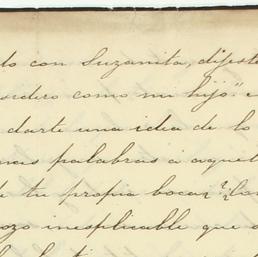 lo con Suzanita, dijeste
sidero como mi hijo" e
darte una idea de lo
mas palabras a aquel
de tu propia boca; ¿Con
ozo inesplicable que